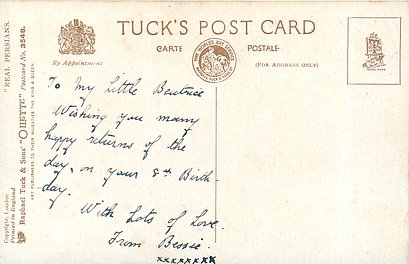 TUCK'S POST CARD
CARTE POSTALE
By Appointment
(FOR ADDRESS ONLY)
"REAL PERSIANS."
Raphael Tuck & Sons' "OILETTE" Postcard No. 3548.
ART PUBLISHERS TO THEIR MAJESTIES THE KING & QUEEN.
Copyright. London.
Printed in England
To My Little Beatrice
Wishing you many
happy returns of the
day, on your 8th Birth-
day.
With Lots of Love.
From Bessie.
xxxxxxxx